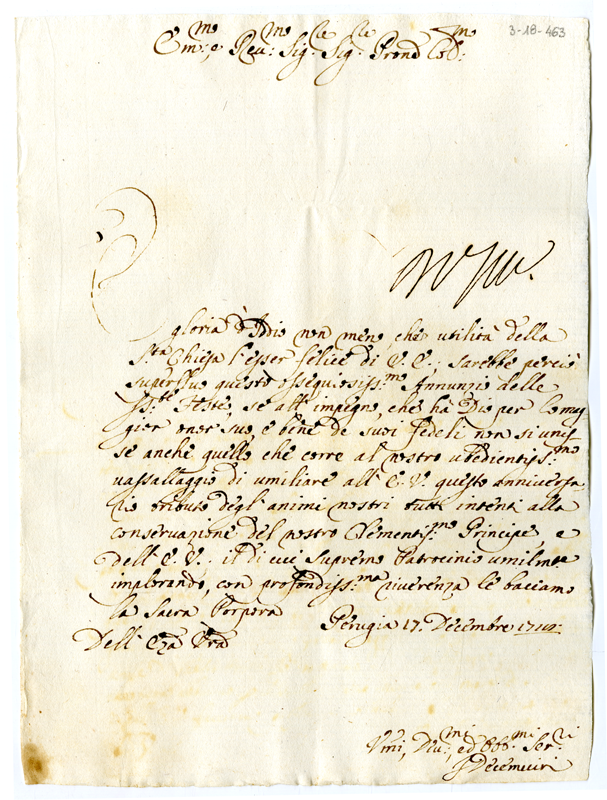 3-18-463
Em:mo e Reu:mo Sig:re Sig:re Prone Col:mo
È gloria d'Iddio non meno che utilità della
Sta Chiesa l'esser felice di V. E.; sarebbe perciò
superfluo questo ossequiosiss:mo Annunzio delle
SS:te Feste, se all'impegno, che hà Dio per la mag
gior onor suo, e bene de suoi fedeli non si unis
se anche quello che corre al nostro ubedientiss:mo
uassallaggio di umiliare all'E. V. questo anniversa
rio tributo degl'animi nostri tutti intenti alla
conservazione del nostro Clementiss:mo Principe, e
dell'E. V.; il di cui supremo Patrocinio umilmte
implorando, con profondiss:ma riuerenza le baciamo
la Sacra Porpora
Perugia 17. Decembre
Dell'Eza Vra
Vmi, Diu:mi, ed Obb:mi Ser:ri
J Decemuiri